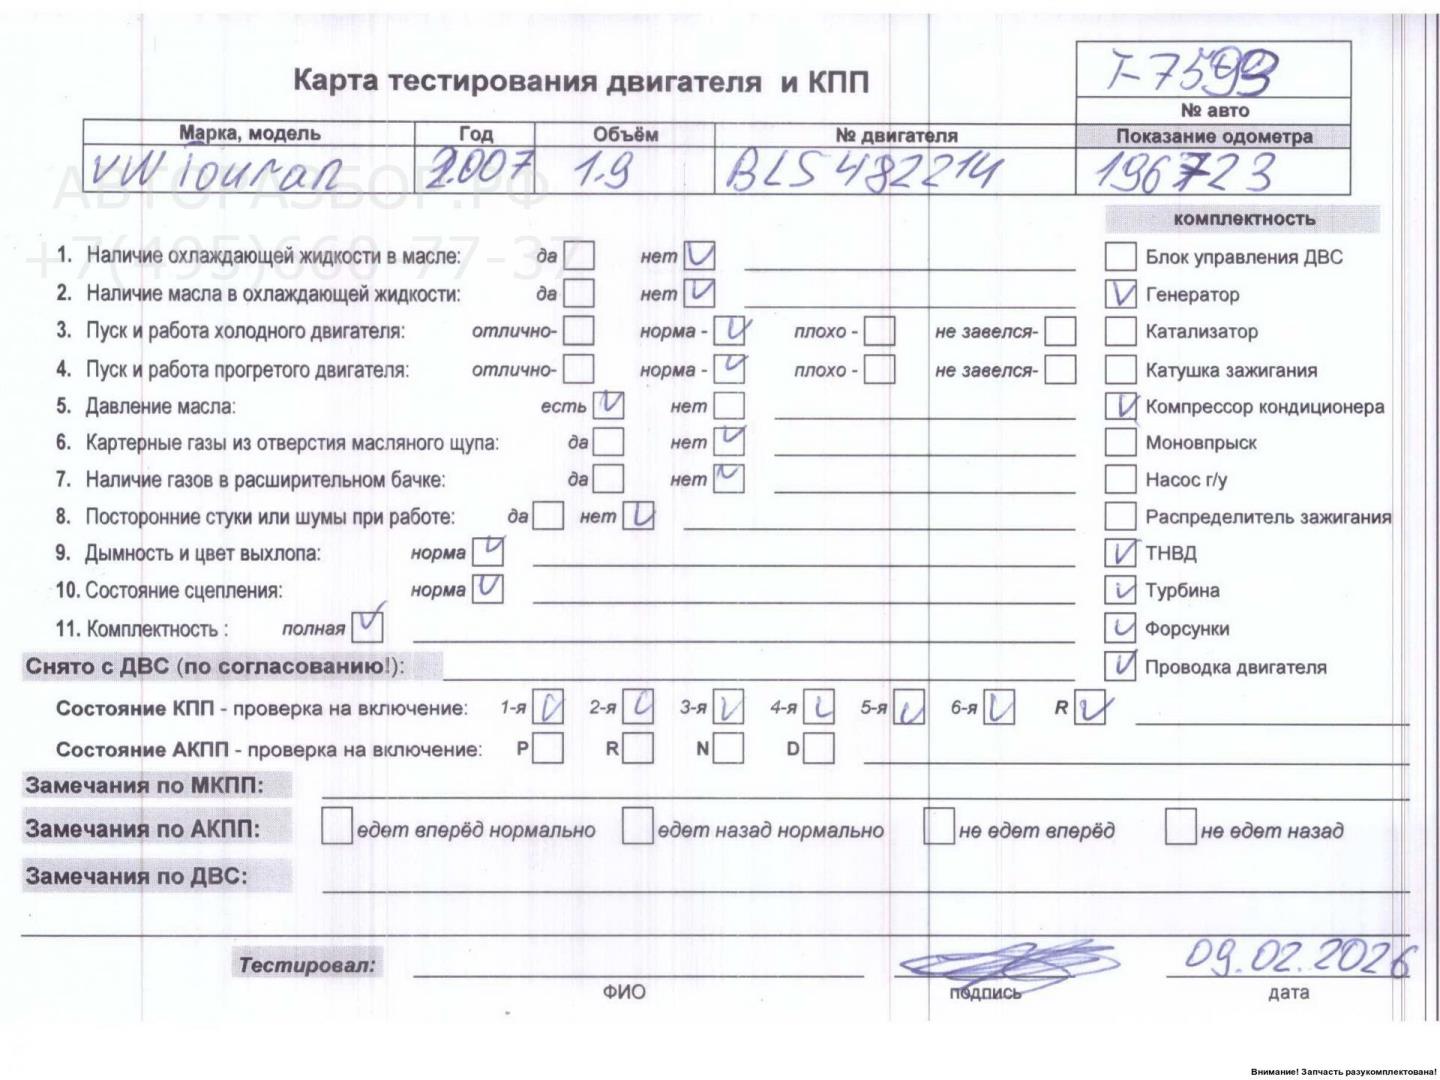 Т-7593
Карта тестирования двигателя и КПП
№ авто
Марка, модель Год Объём № двигателя Показание одометра
VW Touran 2007 1.9 BLS 482214 196723
АВТОРАЗБОР.РФ
+7(495)660-77-37
комплектность
1. Наличие охлаждающей жидкости в масле: да нет V Блок управления ДВС
2. Наличие масла в охлаждающей жидкости: да нет V V Генератор
3. Пуск и работа холодного двигателя: отлично- норма - V плохо - не завелся- Катализатор
4. Пуск и работа прогретого двигателя: отлично- норма - V плохо - не завелся- Катушка зажигания
5. Давление масла: есть V нет V Компрессор кондиционера
6. Картерные газы из отверстия масляного щупа: да нет V Моновпрыск
7. Наличие газов в расширительном бачке: да нет V Насос г/у
8. Посторонние стуки или шумы при работе: да нет V Распределитель зажигания
9. Дымность и цвет выхлопа: норма V V ТНВД
10. Состояние сцепления: норма V V Турбина
11. Комплектность : полная V V Форсунки
Снято с ДВС (по согласованию!): V Проводка двигателя
Состояние КПП - проверка на включение: 1-я V 2-я V 3-я V 4-я V 5-я V 6-я V R V
Состояние АКПП - проверка на включение: P R N D
Замечания по МКПП:
Замечания по АКПП: едет вперёд нормально едет назад нормально не едет вперёд не едет назад
Замечания по ДВС:
Тестировал: 09.02.2026
ФИО подпись дата
Внимание! Запчасть разукомплектована!